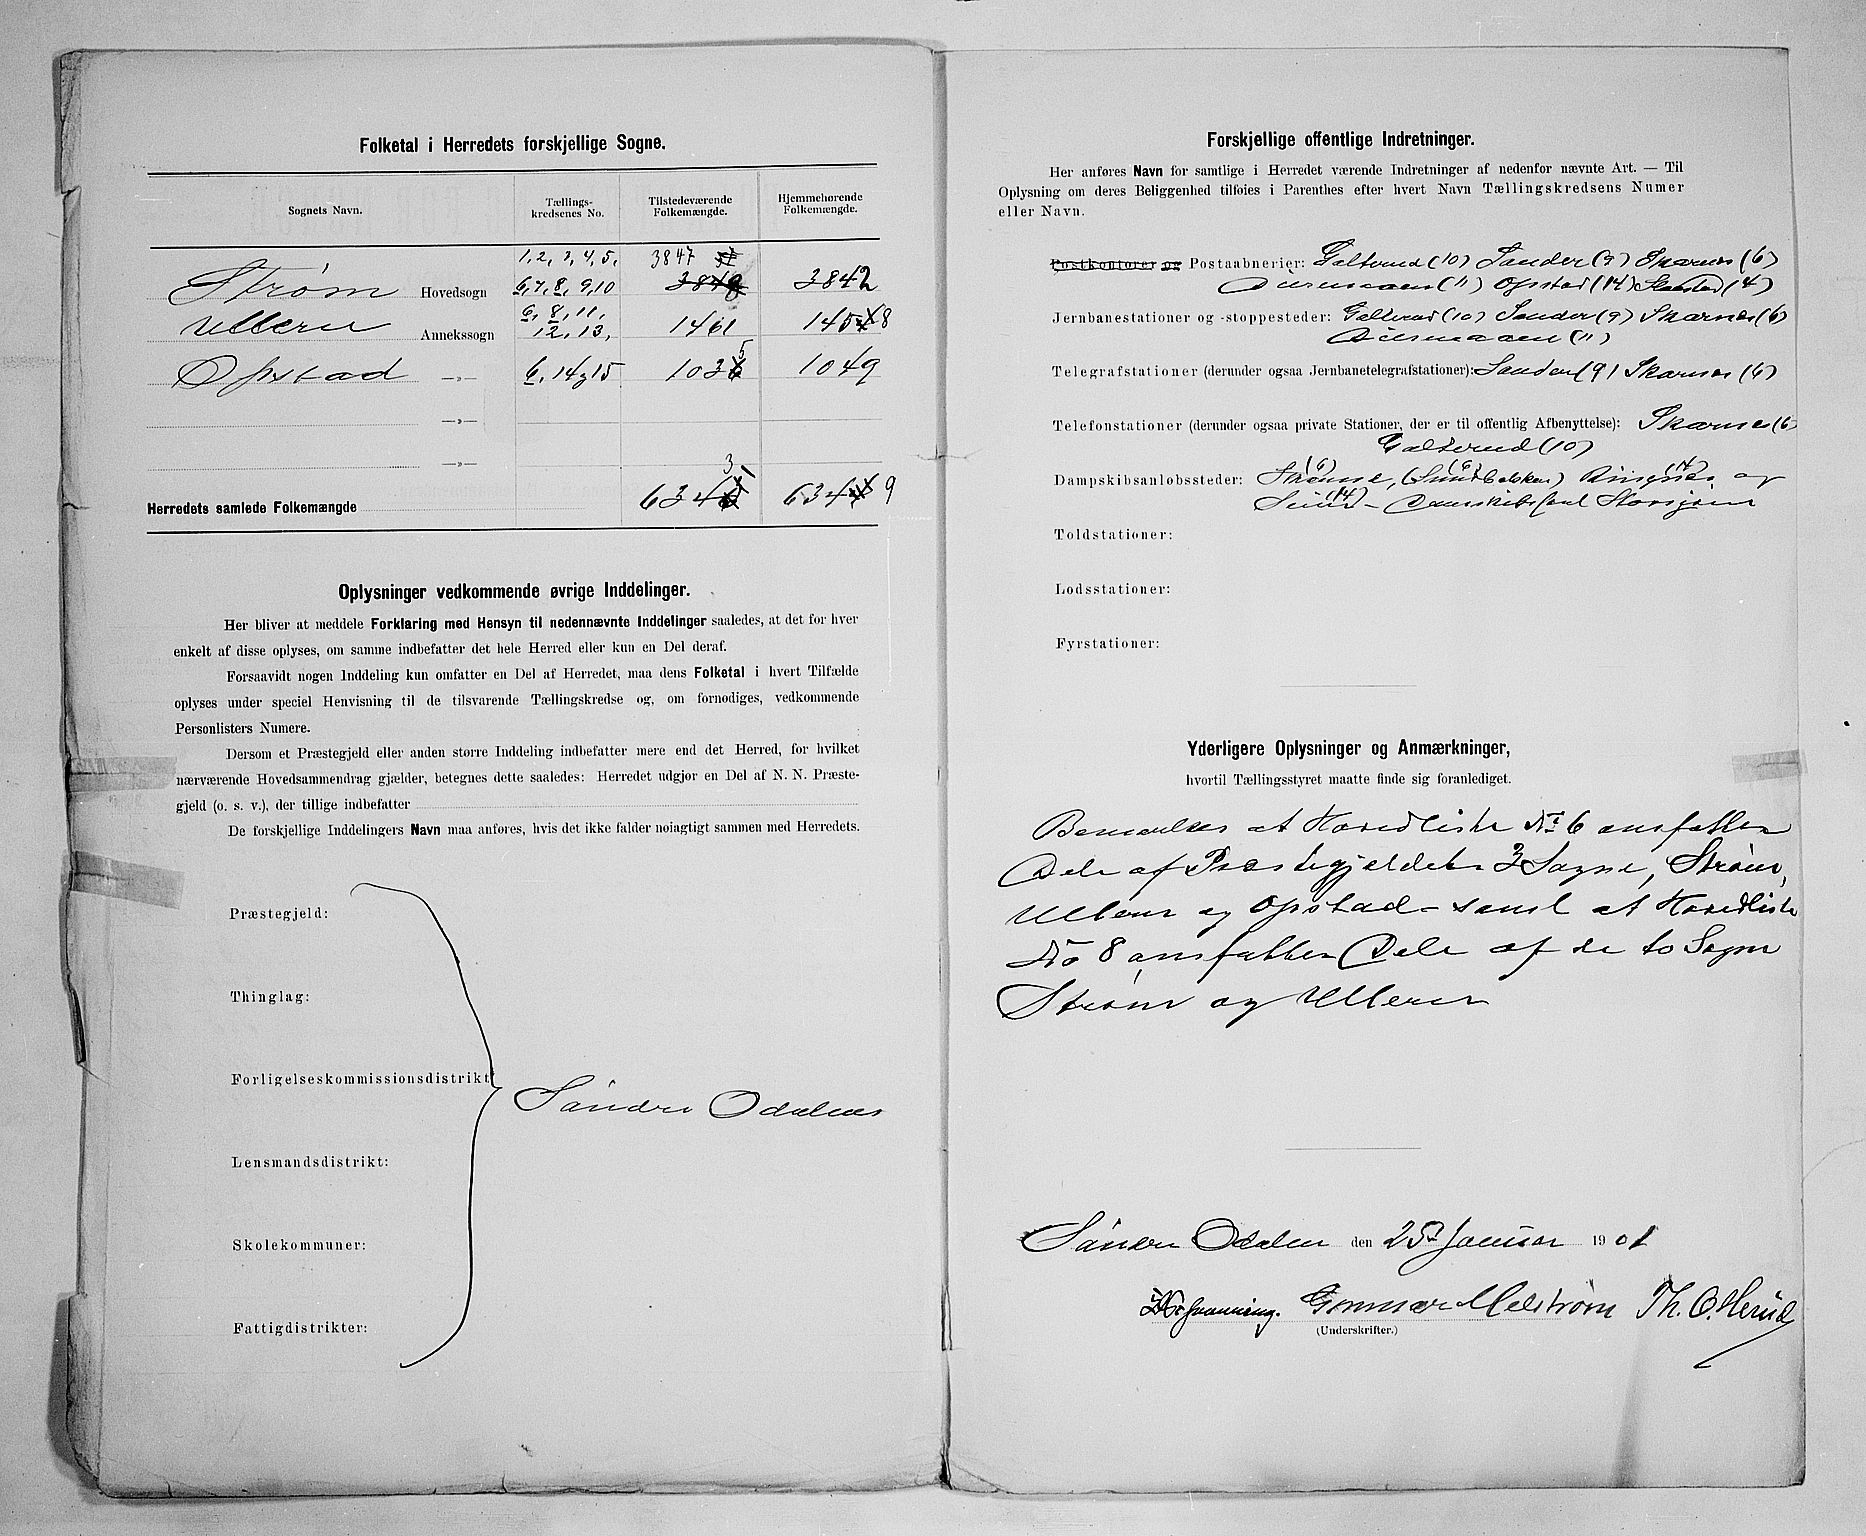 Folketal i Herredets forskjellige Sogne.
Sognets Navn.
Tællings-
kredsenes No.
Tilstedeværende
Folkemængde.
Hjemmehørende
Folkemængde.
1, 2, 3, 4, 5, 3847
Strøm Hovedsogn 6, 7, 8, 9, 10 3842
6, 8, 11,
Ullern Annekssogn 12, 13, 1461 1458
Opstad —„— 6, 14 og 15 1035 1049
—„—
—„—
Herredets samlede Folkemængde 6343 6349
Oplysninger vedkommende øvrige Inddelinger.
Her bliver at meddele Forklaring med Hensyn til nedennævnte Inddelinger saaledes, at det for hver
enkelt af disse oplyses, om samme indbefatter det hele Herred eller kun en Del deraf.
Forsaavidt nogen Inddeling kun omfatter en Del af Herredet, maa dens Folketal i hvert Tilfælde
oplyses under speciel Henvisning til de tilsvarende Tællingskredse og, om fornødiges, vedkommende
Personlisters Numere.
Dersom et Præstegjeld eller anden større Inddeling indbefatter mere end det Herred, for hvilket
nærværende Hovedsammendrag gjælder, betegnes dette saaledes: Herredet udgjør en Del af N. N. Præste-
gjeld (o. s. v.), der tillige indbefatter
De forskjellige Inddelingers Navn maa anføres, hvis det ikke falder nøiagtigt sammen med Herredets.
Præstegjeld:
Thinglag:
Forligelseskommissionsdistrikt
Søndre Odalens
Lensmandsdistrikt:
Skolekommuner:
Fattigdistrikter:
Forskjellige offentlige Indretninger.
Her anføres Navn for samtlige i Herredet værende Indretninger af nedenfor nævnte Art. — Til
Oplysning om deres Beliggenhed tilføies i Parenthes efter hvert Navn Tællingskredsens Numer
eller Navn.
Postkontorer og Postaabnerier: Galterud (10) Sander (9) Skarnes (6)
Disenaaen (11) Opstad (14) (4)
Jernbanestationer og -stoppesteder: Galterud (10) Sander (9) Skarnes (6)
Disenaaen (11)
Telegrafstationer (derunder ogsaa Jernbanetelegrafstationer): Sander (9) Skarnes (6)
Telefonstationer (derunder ogsaa private Stationer, der er til offentlig Afbenyttelse): Skarnes (6)
Galterud (10)
Dampskibsanløbssteder: (6) (6) (14) og
(14) Storsjøen
Toldstationer:
Lodsstationer:
Fyrstationer:
Yderligere Oplysninger og Anmærkninger,
hvortil Tællingsstyret maatte finde sig foranlediget.
Bemærkes at Hovedliste No 6 omfatter
Dele af Præstegjeldets 3 Sogne, Strøm,
Ullern og Opstad – samt at Hovedliste
No 8 omfatter Dele af de to Sogne
Strøm og Ullern
Søndre Odalen den 25 Januar 1901
Gunnar Melstrøm Th. O. Herud
(Underskrifter.)